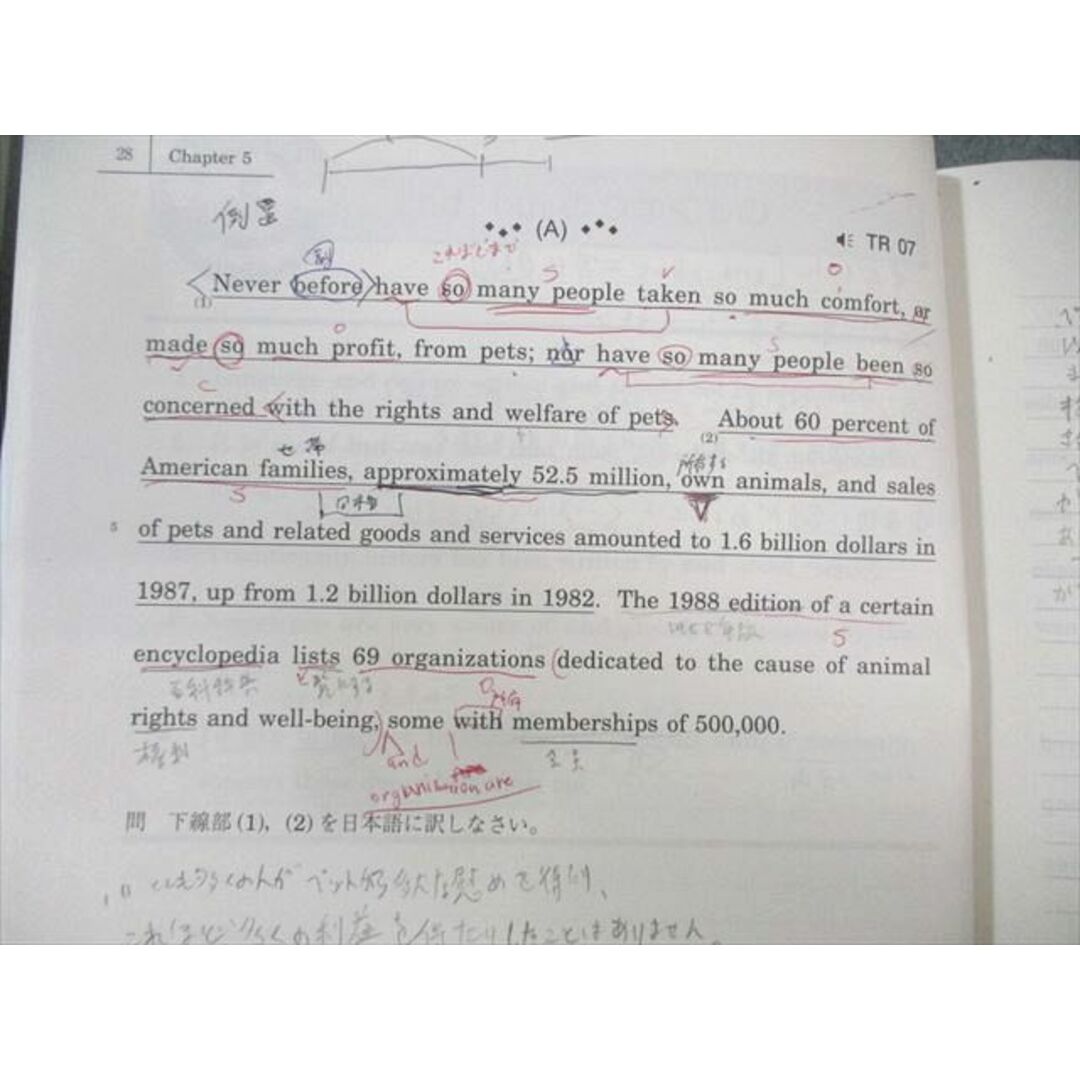 28 Chapter 5
倒置
(A)
TR 07
副 これほどまで S V O
Never before have so many people taken so much comfort, ar
(1)
O S
made so much profit, from pets; nor have so many people been so
C
concerned with the rights and welfare of pets. About 60 percent of
(2)
世帯 所有する
American families, approximately 52.5 million, own animals, and sales
S
5 of pets and related goods and services amounted to 1.6 billion dollars in
1987, up from 1.2 billion dollars in 1982. The 1988 edition of a certain
S
encyclopedia lists 69 organizations (dedicated to the cause of animal
V O
rights and well-being,) some with memberships of 500,000.
権利 and 会員
organization are
問 下線部(1), (2)を日本語に訳しなさい。
多くの人がペットから多大な慰めを得たり、
これほど多くの利益を得たりしたことはありません。